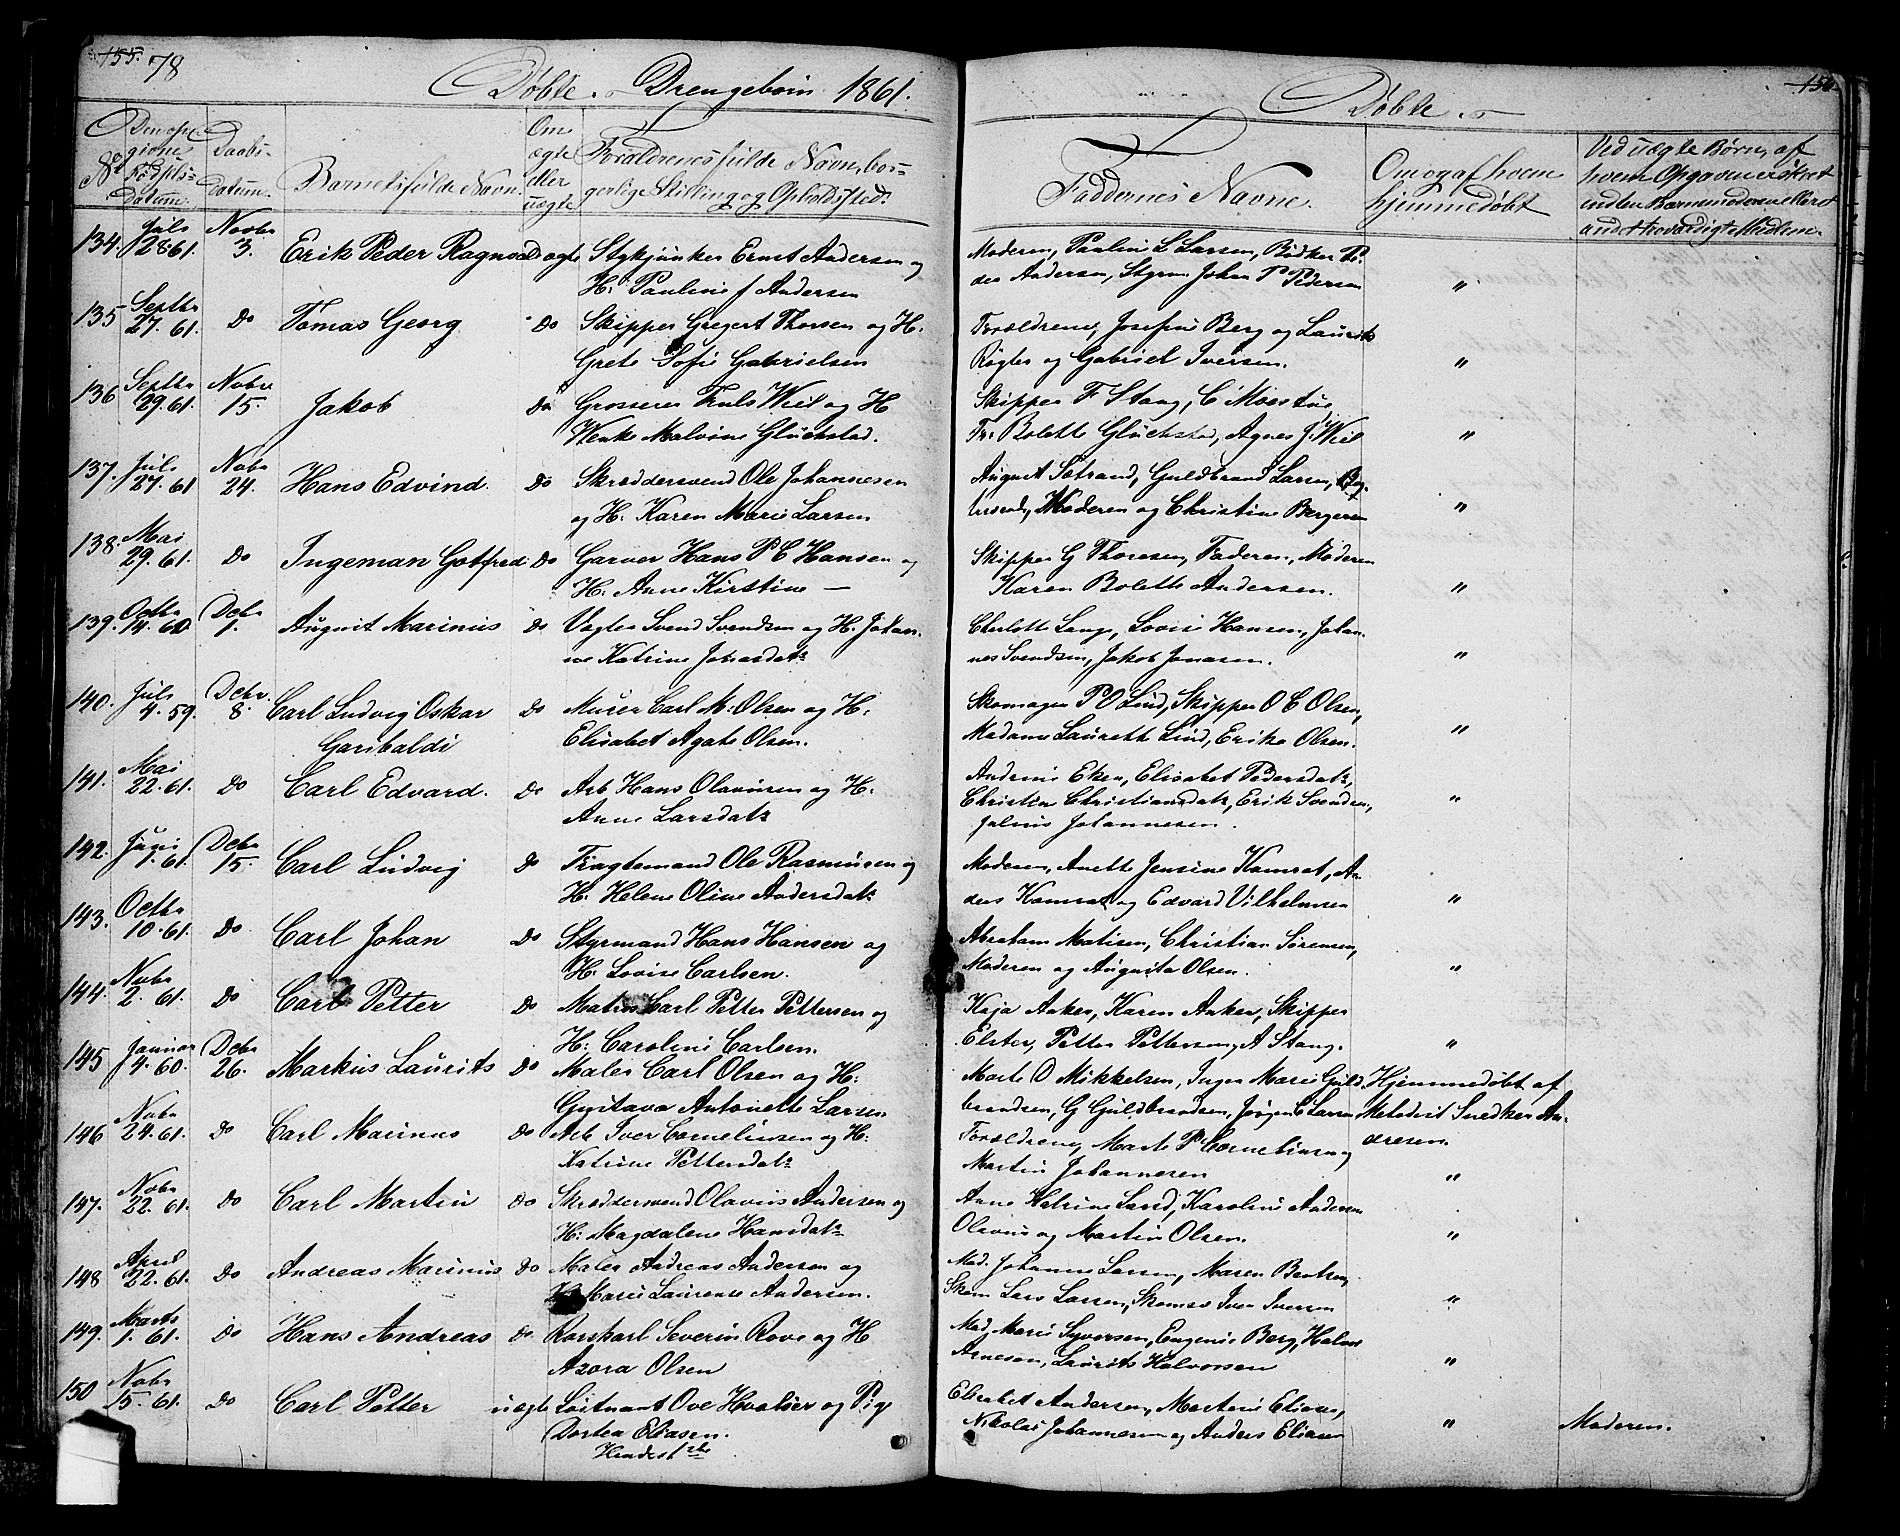 155. 78
Døbte. Drengebørn 1861.
No
Den opgivne Fødselsdatum.
Daabsdatum.
Barnets fulde Navn.
Om ægte eller uægte
Forældrenes fulde Navn, borgerlige Stilling og Opholdssted.
134. Juli 28 61. Novbr 3. Erik Peder Ragnvald ægte Stykjunker Ernst Andersen og
H: Pauline f Andersen
135 Septbr 27. 61. Do Tomas Georg Do Skipper Gregert Thorsen og H.
Grete Sofie Gabrielsen
136 Septbr 29. 61. Nobr 15. Jakob Do Grosserer Truls Wiel og H
Wenke Malvine Glückstad.
137. Juli 27. 61 Nobr 24. Hans Edvind. Do Skræddersvend Ole Johannesen
og H. Karen Marie Larsen
138. Mai 29. 61. Do Ingeman Gotfred Do Garver Hans P C Hansen og
H. Anne Kirstine —
139. Octbr 14. 60 Debr 1. August Marinus Do Vægter Svend Svendsen og H. Johan
ne Katrine
140. Juli 4. 59. Debr. 8. Carl Ludvig Oskar Do Murer Carl M. Olsen og H:
Garibaldi Elisabet Agate Olsen.
141. Mai 22. 61. Do Carl Edvard. Do Arb Hans Olavusen og H.
Anne Larsdatr
142. Juni 1. 61. Debr 15. Carl Ludvig Do Fragtemand Ole Rasmusen og
H. Helene Oline Andersdatr
143. Octbr 10. 61. Do Carl Johan Do Styrmand Hans Hansen og
H. Lovise Carlsen.
144. Nobr 2. 61. Do Carl Petter Do Matros Carl Petter Pettersen og
H. Caroline Carlsen.
145 Januar 4. 60. Debr 26. Markus Laurits Do Maler Carl Olsen og H:
Gustava Antonette Larsen
146 Nobr 24. 61. Do Carl Marinus Do Arb Iver Corneliusen og H:
Katrine Pettersdatr
147. Nobr 22. 61. Do Carl Martin Do Skræddersvend Olavus Andersen og
H: Magdalene Hansdatr
148 April 22. 61. Do Andreas Marinus Do Maler Andreas Andersen og
Marie Laurense Andersen.
149. Marts 1. 61. Do Hans Andreas Do Severin Rove og H
Azora Olsen
150 Nobr 15. 61. Do Carl Petter uægte Løitnant Ove Hvalsøe og Pige
Dortea Eliasen.
Døbte.
156
Faddernes Navne.
Om og af hvem hjemmedøbt
Ved uægte Børn, af hvem Opgaven er skeet enten Barnemoderen eller et andet troværdigt Medlem.
Moderen, Pauline L Larsen, Bødker Pe
der Andersen, Styrm Johan P Pedersen "
Forældrene, Josefine Berg og Laurits
og Gabriel Iversen. "
Skipper F Stang, C Moestue
Fr: Bolette Glückstad, Agnes J. Wiel "
August Sætrand, Guldbrand Larsen,
Moderen og Christine Bergersen "
Skipper G Thoresen, Faderen, Moderen
Karen Bolette Andersen. "
Charlotte Lange, Lovise Hansen, Johan
nes Svendsen, Jakob Jonasen. "
Skomager P O Lind, Skipper O C Olsen,
Madame Laurette Lind, Erika Olsen. "
Andrine Eken, Elisabet Pedersdatr,
Christine Christiansdatr, Erik Svendsen, "
Julius Johannesen.
Moderen, Anette Jensine Kamrat, An
ders Kamrat og Edvard Vilhelmsen "
Abraham Matisen, Christian Sørensen,
Moderen og Augusta Olsen. "
Kaja Anker, Karen Anker, Skipper
Elster, Petter Pettersen, A Stang. "
Marte O Mikkelsen, Inger Marie Guld Hjemmedøbt af
brandsen, G Guldbrandsen, Jørgen C Larsen Metodist Snedker An
Forældrene, Marte P. Corneliusen og dresen.
Martin Johannesen "
Anne Katrine Lund, Karoline Andersen
Olavus og Martin Olsen. "
Mad. Johanne Larsen, Maren Berntsen,
Skom Lars Larsen, Iver Iversen "
Mad. Marie Syversen, Eugenie Berg, Halvor
Arnesen, Laurits Halvorsen "
Elisabet Andersen, Martine Eliasen,
Nikolai Johannesen og Anders Eliasen " Moderen.